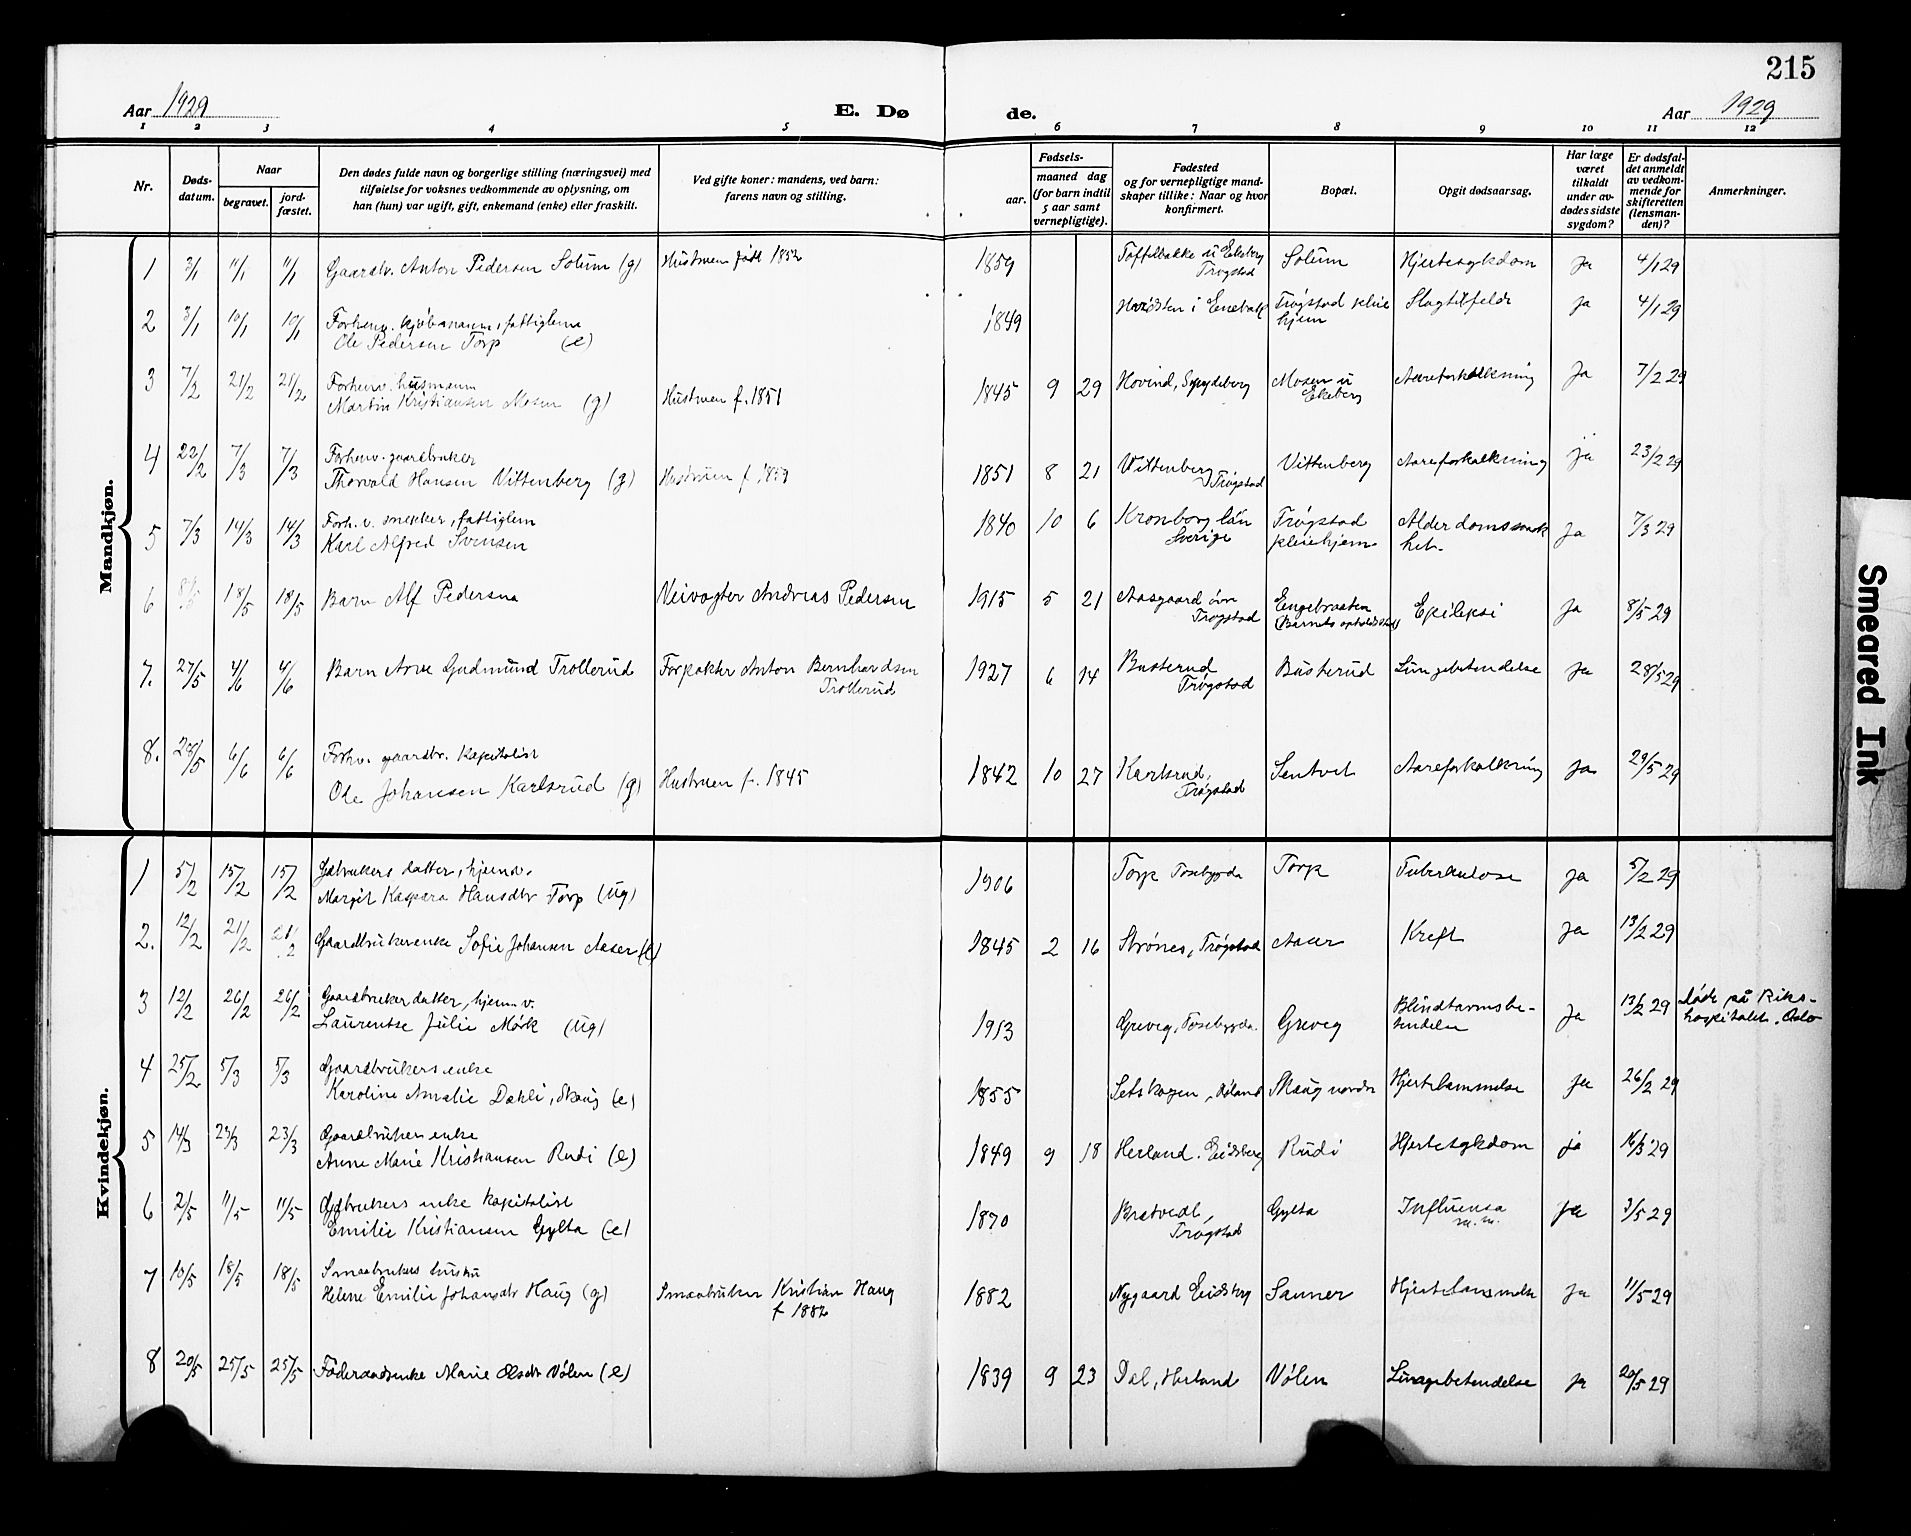 215
Aar 1929 E. Dø de. Aar 1929
1 2 3 4 5 6 7 8 9 10 11 12
Nr. Døds-datum. Naar begravet. jord-fæstet. Den dødes fulde navn og borgerlige stilling (næringsvei) med tilføielse for voksnes vedkommende av oplysning, om han (hun) var ugift, gift, enkemand (enke) eller fraskilt. Ved gifte koner: mandens, ved barn: farens navn og stilling. Fødsels- aar. maaned dag (for barn indtil 5 aar samt vernepligtige). Fødested og for vernepligtige mand-skaper tillike: Naar og hvor konfirmert. Bopæl. Opgit dødsaarsag. Har læge været tilkaldt under av-dødes sidste sygdom? Er dødsfal-det anmeldt av vedkom-mende for skifteretten (lensman-den)? Anmerkninger.
Mandkjøn.
1 3/1 11/1 11/1 Gaardbr. Anton Pedersen Solum (g) Hustruen født 1852 1859 Toffelbakke u Ekeberg Trøgstad Solum Hjertesykdom Ja 4/1 29
2 3/1 10/1 10/1 Forhenv. kjøbmann, fattiglem
Ole Pedersen Torp (e) 1849 i Enebakk Trøgstad pleie hjem Slagtilfelde ja 4/1 29
3 7/2 21/2 21/2 Forhenv. husmann
Martin Kristiansen Mosen (g) Hustruen f. 1851 1845 9 29 Hovind, Spydeberg Mosen u Ekeberg Aareforkalkning Ja 7/2 29
4 22/2 7/3 7/3 Forhenv. gaardbruker
Thorvald Hansen Vittenberg (g) Hustruen f. 1859 1851 8 21 Vittenberg, Trøgstad Vittenberg Aareforkalkning ja 23/2 29
5 7/3 14/3 14/3 Forh. v. snekker, fattiglem
Karl Alfred Svensen 1840 10 6 Kronborg län Sverige Trøgstad pleiehjem Alderdomssvak het. Ja 7/3 29
6 8/5 18/5 18/5 Barn Alf Pedersen Veivogter Andreas Pedersen 1915 5 21 Aasgaard øvre Trøgstad Engebraaten (Barnets opholdssted) Epilepsi Ja 8/5 29
7. 27/5 4/6 4/6 Barn Arne Gudmund Trollerud Forpakter Anton Bernhardsen Trollerud 1927 6 14 Busterud Trøgstad Busterud Lungebetendelse Ja 28/5 29
8. 28/5 6/6 6/6 Forhv. gaardbr. kapitalist
Ole Johansen Karlsrud (g) Hustruen f. 1845 1842 10 27 Karlsrud, Trøgstad Sentvet Aareforkalkning Ja 29/5 29
Kvindekjøn.
1 5/2 15/2 15/2 Gdbrukers datter, hjemv.
Margit Kaspara Hansdtr Torp (ug) 1906 Torp Tosebygda Torp Tuberkulose Ja 5/2 29
2. 12/2 21/2 21/2 Gaardbrukerenke Sofie Johansen Aaser (e) 1845 2 16 Strønes, Trøgstad Aaser Kreft Ja 13/2 29
3 12/2 26/2 26/2 Gaardbruker datter, hjem. v.
Laurentse Julie Mørk (ug) 1913 Greveg, Tosebygda Greveg Blindtarmsbe-tendelse Ja 13/2 29 døde på Riks-hospitalet, Oslo
4 25/2 5/3 5/3 Gaardbrukers enke
Karoline Amalie Dahli, Skaug (e) 1855 Setskogen, Høland Skaug nordre Hjertelammelse Ja 26/2 29
5 14/3 23/3 23/3 Gaardbruker enke
Anne Marie Kristiansen Rudi (e) 1849 9 18 Herland, Eidsberg Rudi Hjertesykdom ja 16/3 29
6 2/5 11/5 11/5 Gdbrukers enke kapitalist
Emilie Kristiansen Gylta (e) 1870 Bratvedt, Trøgstad Gylta Influensa m.m. Ja 3/5 29
7 10/5 18/5 18/5 Smaabrukers hustru
Helene Emilie Johansdtr Haug (g) Smaabruker Kristian Haug f 1882 1882 Nygaard Eidsberg Sanner Hjertelammelse Ja 11/5 29
8 20/5 25/5 25/5 Føderaadsenke Marie Olsdtr Vølen (e) 1839 9 23 Dal, Herland Vølen Lungebetendelse Ja 20/5 29
Smeared Ink